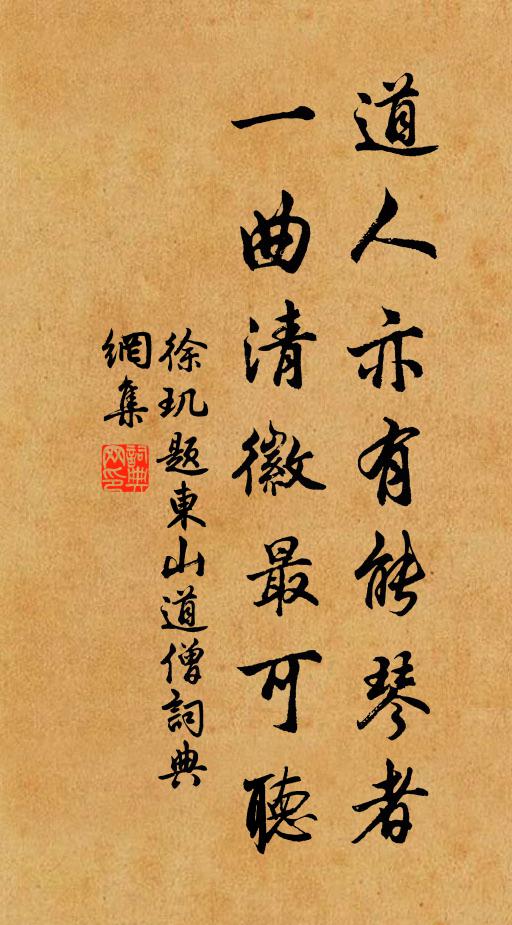 道人亦有能琴者
一曲清徽最可聽
徐玑題東山道僧詞典
網集
詞典
网印